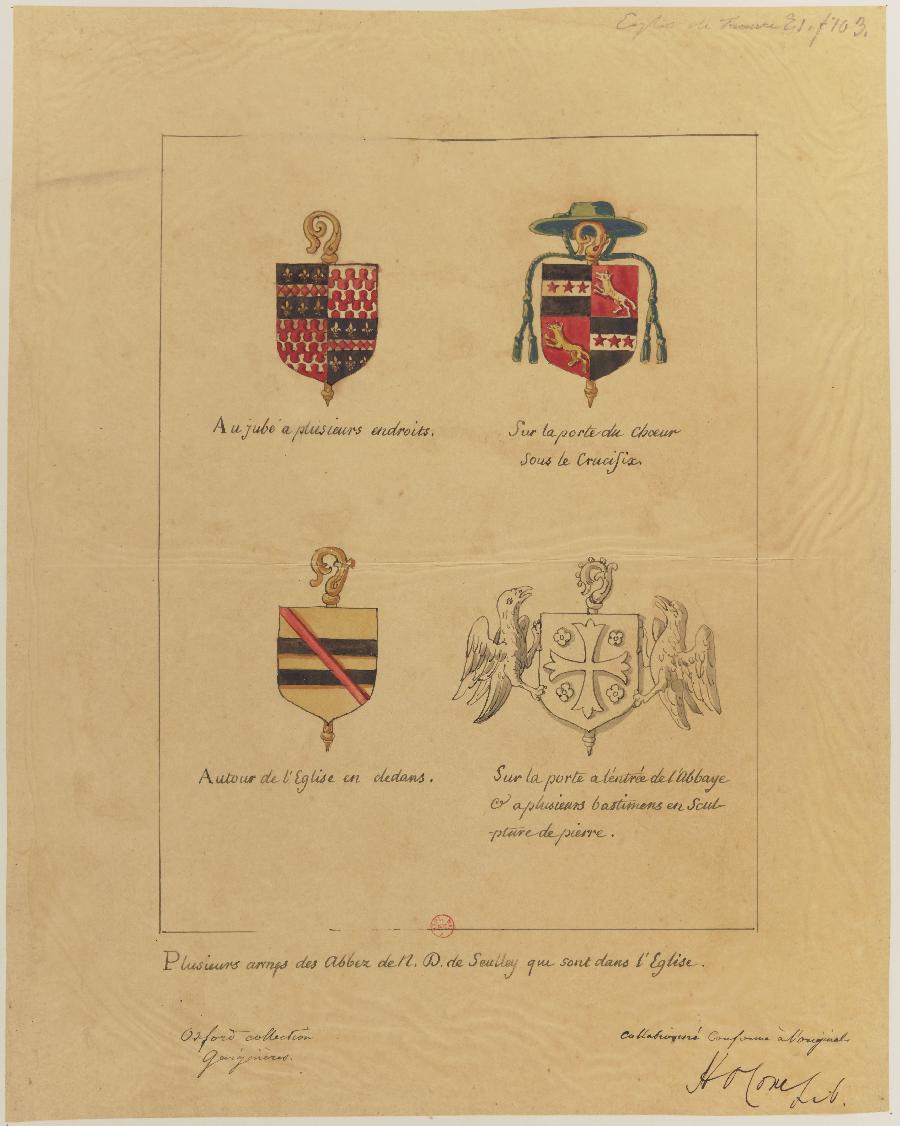 Eglise de France E1. f° 103.
Au jubé a plusieurs endroits.
Sur la porte du Chœur
Sous le Crucifix.
Autour de l'Eglise en dedans.
Sur la porte a l'entrée de l'Abbaye
& a plusieurs bastimens en Scul-
-pture de pierre.
Plusieurs armes des Abbez de N. D. de Seulley qui sont dans l'Eglise.
Oxford collection
Gaignières.
conforme à l'original